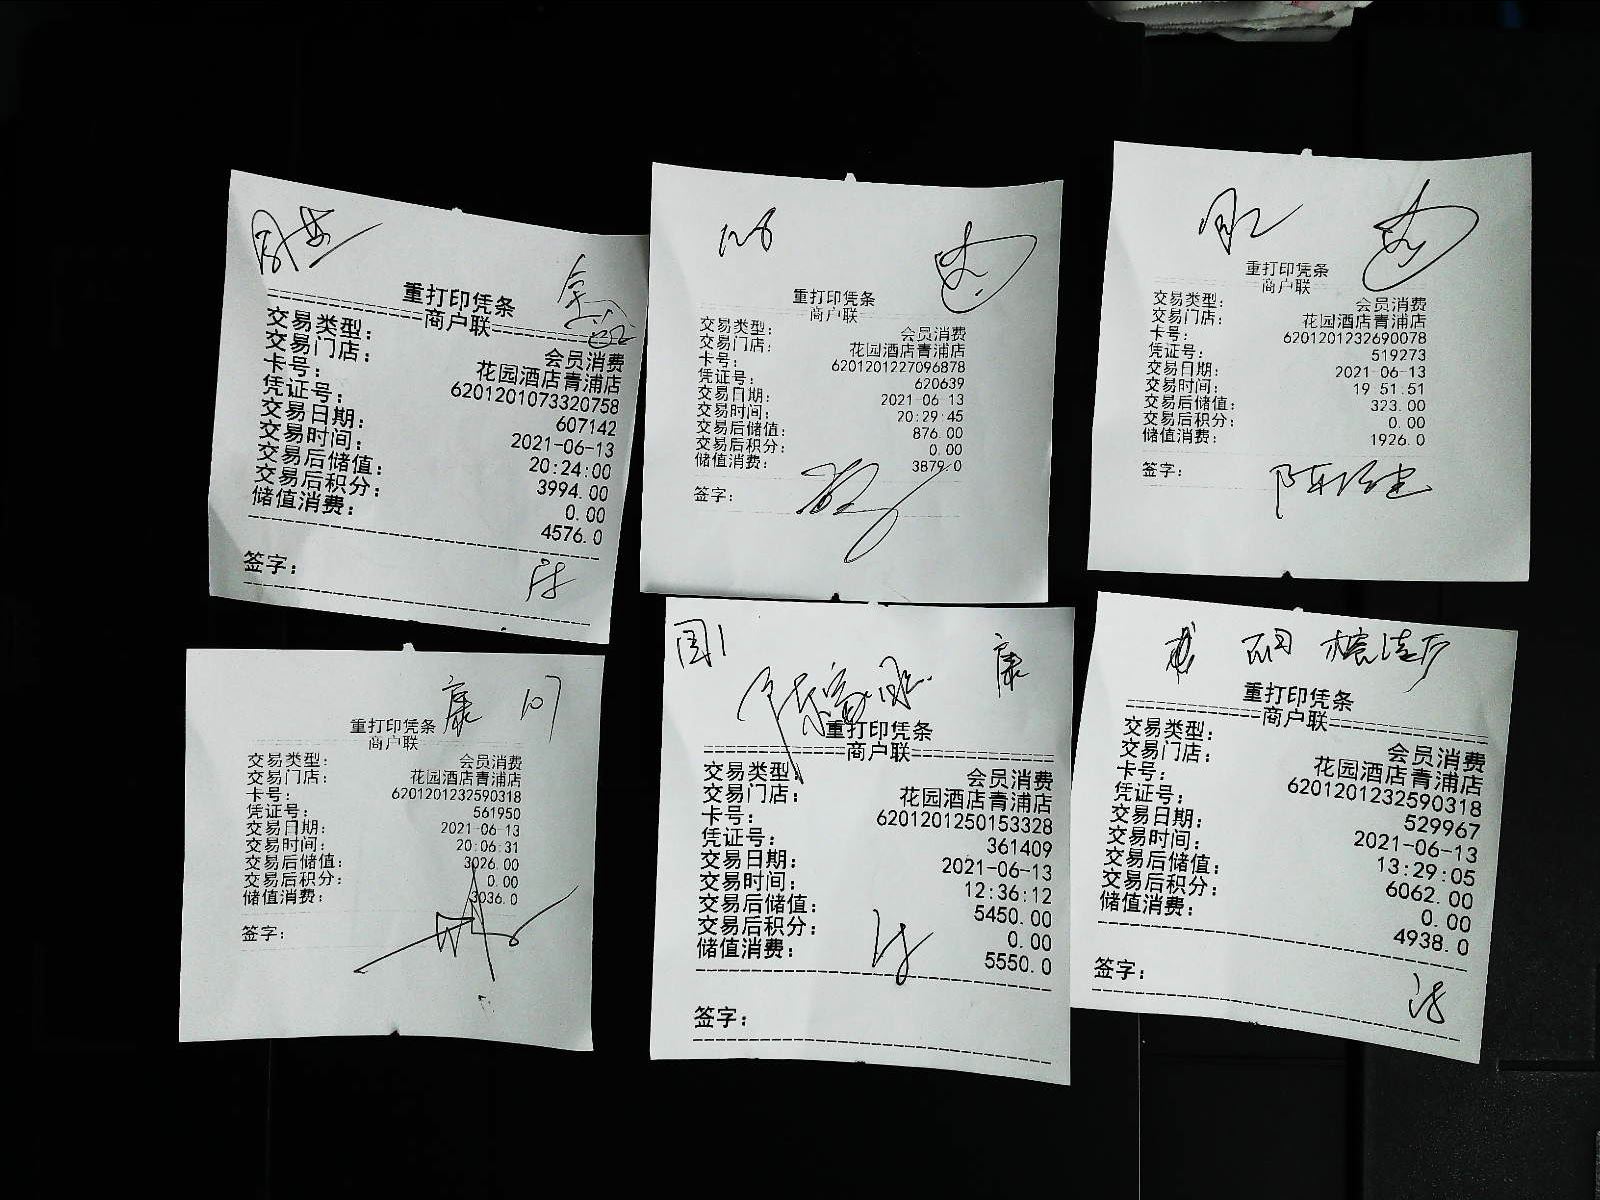 重打印凭条
商户联
交易类型: 会员消费
交易门店: 花园酒店青浦店
卡号: 6201201073320758
凭证号: 607142
交易日期: 2021-06-13
交易时间: 20:24:00
交易后储值: 3994.00
交易后积分: 0.00
储值消费: 4576.0
签字:
重打印凭条
商户联
交易类型: 会员消费
交易门店: 花园酒店青浦店
卡号: 6201201227096878
凭证号: 620639
交易日期: 2021-06-13
交易时间: 20:29:45
交易后储值: 876.00
交易后积分: 0.00
储值消费: 3879.0
签字:
重打印凭条
商户联
交易类型: 会员消费
交易门店: 花园酒店青浦店
卡号: 6201201232690078
凭证号: 519273
交易日期: 2021-06-13
交易时间: 19:51:51
交易后储值: 323.00
交易后积分: 0.00
储值消费: 1926.0
签字:
康 107
重打印凭条
商户联
交易类型: 会员消费
交易门店: 花园酒店青浦店
卡号: 6201201232590318
凭证号: 561950
交易日期: 2021-06-13
交易时间: 20:06:31
交易后储值: 3026.00
交易后积分: 0.00
储值消费: 3036.0
签字:
康
重打印凭条
商户联
交易类型: 会员消费
交易门店: 花园酒店青浦店
卡号: 6201201250153328
凭证号: 361409
交易日期: 2021-06-13
交易时间: 12:36:12
交易后储值: 5450.00
交易后积分: 0.00
储值消费: 5550.0
签字:
重打印凭条
商户联
交易类型: 会员消费
交易门店: 花园酒店青浦店
卡号: 6201201232590318
凭证号: 529967
交易日期: 2021-06-13
交易时间: 13:29:05
交易后储值: 6062.00
交易后积分: 0.00
储值消费: 4938.0
签字: